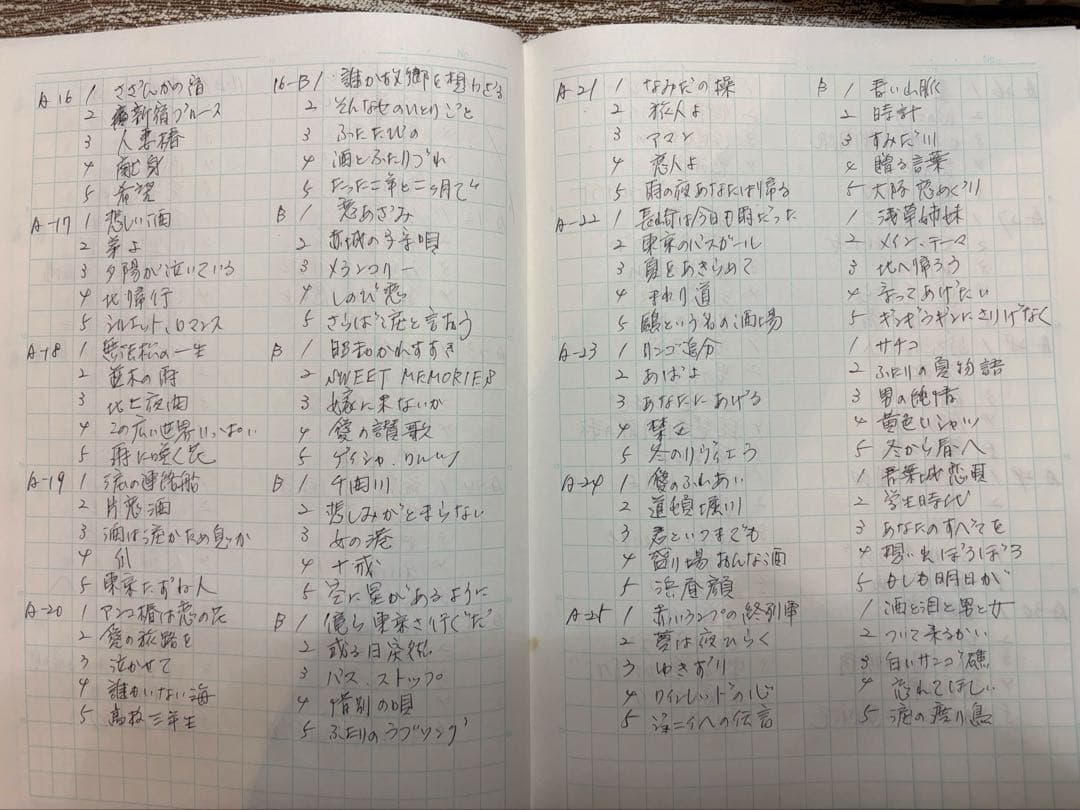 A-16 1 さざんかの宿
2 新宿ブルース
3 人恋椿
4 献身
5 希望
A-17 1 悲しい酒
2 弟よ
3 夕陽が泣いている
4 北帰行
5 シルエット、ロマンス
A-18 1 無法松の一生
2 並木の雨
3 北上夜曲
4 この広い世界いっぱい
5 雨に咲く花
A-19 1 涙の連絡船
2 片恋酒
3 酒は涙かため息か
4 爪
5 東京たずね人
A-20 1 アンコ椿は恋の花
2 愛の旅路を
3 泣かせて
4 誰かいない海
5 高校三年生
16-B 1 誰か故郷を想わざる
2 そんな女のひとりごと
3 ふたたびの
4 酒とふたりづれ
5 たった二年と二ヶ月で
B 1 恋あざみ
2 赤城の子守唄
3 メランコリー
4 しのび恋
5 さらばと言おう
B 1 昭和かれすすき
2 SWEET MEMORIES
3 嫁に来ないか
4 愛の讃歌
5 ゲイシャ、ワルツ
B 1 千曲川
2 悲しみがとまらない
3 女の港
4 十戒
5 空に星があるように
B 1 俺ら東京さ行ぐだ
2 或る日突然
3 バス、ストップ
4 惜別の唄
5 ふたりのラブソング
A-21 1 なみだの操
2 旅人よ
3 アマン
4 恋人よ
5 雨の夜あなたは帰る
A-22 1 長崎は今日も雨だった
2 東京のバスガール
3 夏をあきらめて
4 まわり道
5 鴎という名の酒場
A-23 1 リンゴ追分
2 あばよ
3 あなたにあげる
4 禁区
5 冬のリヴィエラ
A-24 1 愛のふれあい
2 道頓堀川
3 君といつまでも
4 盛り場おんな酒
5 浜昼顔
A-25 1 赤いランプの終列車
2 夢は夜ひらく
3 ゆきずり
4 ワインレッドの心
5 ジョニイへの伝言
B 1 青い山脈
2 時計
3 すみだ川
4 贈る言葉
5 大阪恋めぐり
1 浅草姉妹
2 メイン、テーマ
3 北へ帰ろう
4 守ってあげたい
5 ギンギラギンにさりげなく
1 サチコ
2 ふたりの夏物語
3 男の純情
4 黄色いシャツ
5 冬から春へ
1 青葉城恋唄
2 学生時代
3 あなたのすべてを
4 想い出ぼろぼろ
5 もしも明日が
1 酒と泪と男と女
2 ついて来るかい
3 白いサンゴ礁
4 忘れてほしい
5 涙の渡り鳥